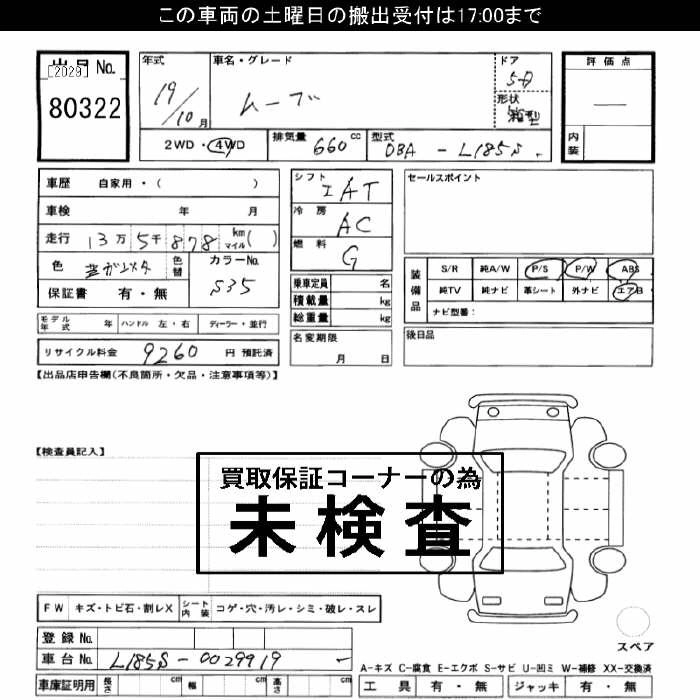 この車両の土曜日の搬出受付は17:00まで
出品No.
[2029]
80322
年式
19/10月
車名・グレード
ムーブ
ドア
5D
形状
箱型
評価点
―
内装
2WD・4WD
排気量 660cc
型式 DBA - L185S
車歴 自家用・( )
車検 年 月
走行 13万5千878 km マイル( )
色
色替
カラーNo.
S35
保証書 有・無
シフト IAT
冷房 AC
燃料 G
セールスポイント
乗車定員 名
積載量 kg
総重量 kg
装備品
S/R 純A/W P/S P/W ABS
純TV 純ナビ 革シート 外ナビ エアB
ナビ型番:
モデル年式 年 ハンドル 左・右 ディーラー・並行
名変期限
月 日
後日品
リサイクル料金 9260 円 預託済
【出品店申告欄(不良箇所・欠品・注意事項等)】
【検査員記入】
買取保証コーナーの為
未検査
FW キズ・トビ石・割レX
シート内装 コゲ・穴・汚レ・シミ・破レ・スレ
登録No.
車台No. L185S-0029919
スペア
A-キズ C-腐食 E-エクボ S-サビ U-凹ミ W-補修 XX-交換済
車庫証明用 長さ cm 幅 cm 高さ cm
工具 有・無 ジャッキ 有・無